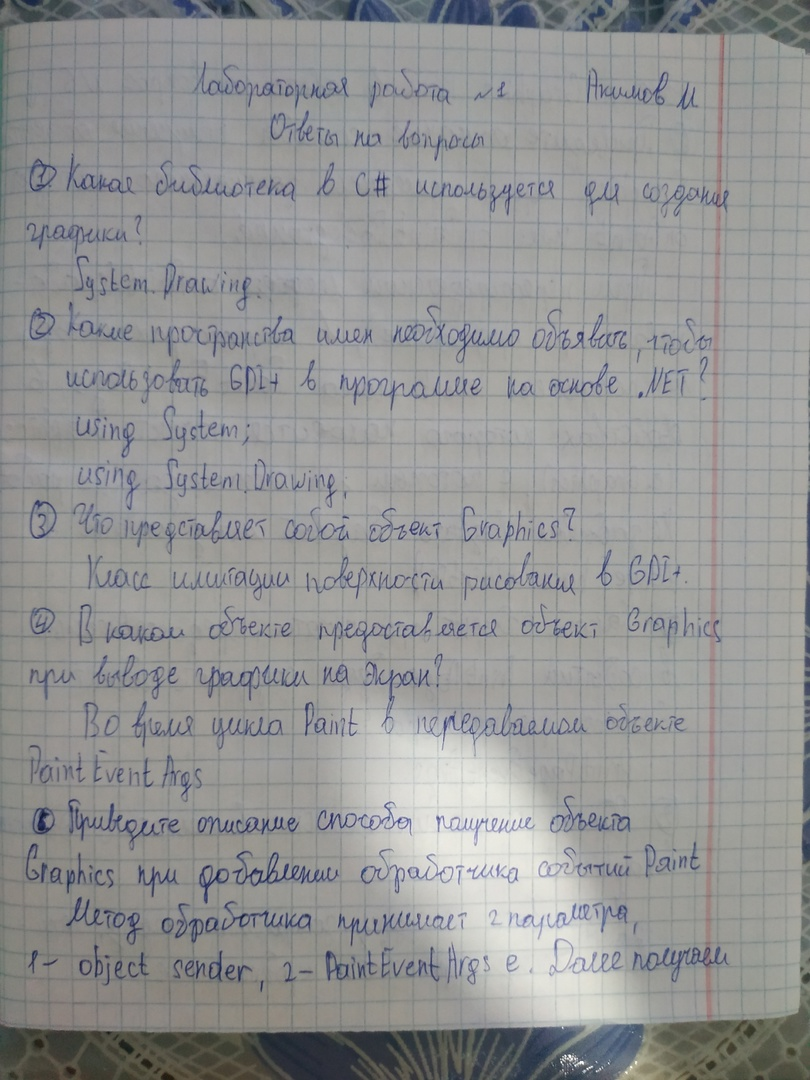 Лабораторная работа №1 Акимов И
Ответы на вопросы
① Какая библиотека в C# используется для создания
графики?
System.Drawing.
② Какие пространства имен необходимо объявить, чтобы
использовать GDI+ в программе на основе .NET?
using System;
using System.Drawing;
③ Что представляет собой объект Graphics?
Класс имитации поверхности рисования в GDI+.
④ В каком объекте предоставляется объект Graphics
при выводе графики на экран?
Во время цикла Paint в передаваемом объекте
PaintEventArgs
⑤ Приведите описание способа получение объекта
Graphics при добавлении обработчика событий Paint
Метод обработчика принимает 2 параметра,
1- object sender, 2- PaintEventArgs e. Далее получаем